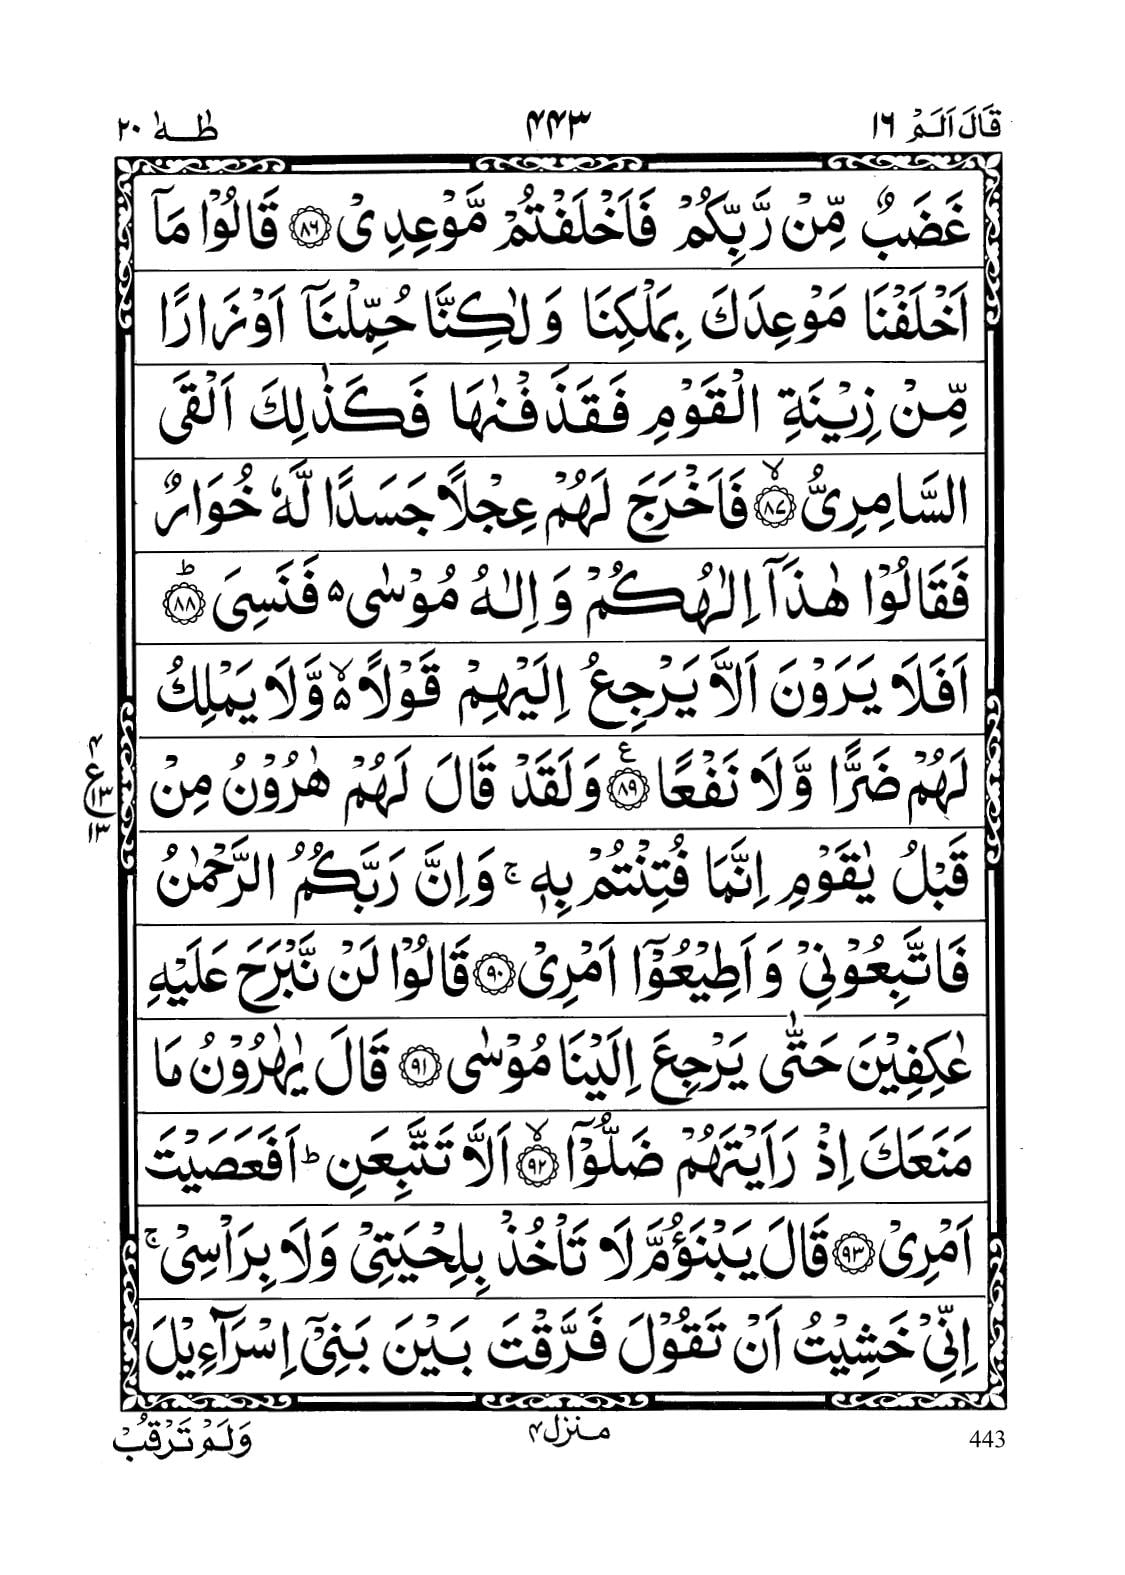 قَالَ اَلَمْ ١٦ ۴۴۳ طٰـهٰ ٢٠
غَضَبٌ مِّنْ رَّبِّكُمْ فَاَخْلَفْتُمْ مَّوْعِدِىْ ﴿٨٦﴾ قَالُوْا مَاۤ
اَخْلَفْنَا مَوْعِدَكَ بِمَلْكِنَا وَلٰكِنَّا حُمِّلْنَاۤ اَوْزَارًا
مِّنْ زِيْنَةِ الْقَوْمِ فَقَذَفْنٰهَا فَكَذٰلِكَ اَلْقَى
السَّامِرِىُّ ﴿٨٧﴾ۙ فَاَخْرَجَ لَهُمْ عِجْلًا جَسَدًا لَّهٗ خُوَارٌ
فَقَالُوْا هٰذَاۤ اِلٰهُكُمْ وَاِلٰهُ مُوْسٰى ۥ فَنَسِىَ ﴿٨٨﴾ؕ
اَفَلَا يَرَوْنَ اَلَّا يَرْجِعُ اِلَيْهِمْ قَوْلًا ۙ۬ وَّلَا يَمْلِكُ
لَهُمْ ضَرًّا وَّلَا نَفْعًا ﴿٨٩﴾ع وَلَقَدْ قَالَ لَهُمْ هٰرُوْنُ مِنْ
۴
ع ١٣
١٣
قَبْلُ يٰقَوْمِ اِنَّمَا فُتِنْتُمْ بِهٖ ۚ وَاِنَّ رَبَّكُمُ الرَّحْمٰنُ
فَاتَّبِعُوْنِىْ وَاَطِيْعُوْۤا اَمْرِىْ ﴿٩٠﴾ قَالُوْا لَنْ نَّبْرَحَ عَلَيْهِ
عٰكِفِيْنَ حَتّٰى يَرْجِعَ اِلَيْنَا مُوْسٰى ﴿٩١﴾ قَالَ يٰهٰرُوْنُ مَا
مَنَعَكَ اِذْ رَاَيْتَهُمْ ضَلُّوْۤا ﴿٩٢﴾ۙ اَلَّا تَتَّبِعَنِ ؕ اَفَعَصَيْتَ
اَمْرِىْ ﴿٩٣﴾ قَالَ يَبْنَؤُمَّ لَا تَاْخُذْ بِلِحْيَتِىْ وَلَا بِرَاْسِىْ ۚ
اِنِّىْ خَشِيْتُ اَنْ تَقُوْلَ فَرَّقْتَ بَيْنَ بَنِىْۤ اِسْرَآءِيْلَ
443 منزل۴ وَلَمْ تَرْقُبْ